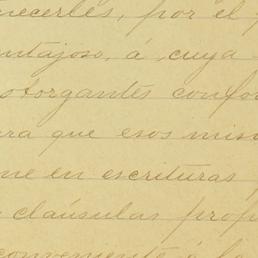 necerles, por el
ntajoso, á cuya
otorgantes confor
ra que esos mism
ne en escrituras
claúsulas prop
conveniente á la